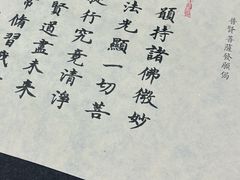 普賢菩薩發願偈
願持諸佛微妙
法光顯一切菩
行究竟清淨
賢道盡未來
脩習